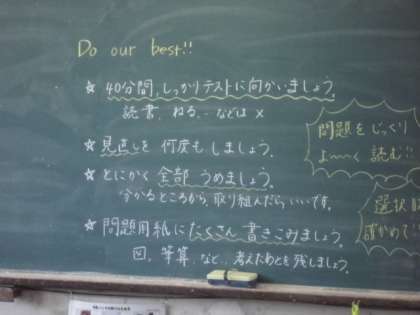 Do our best!!
☆ 40分間、しっかりテストに向かいましょう。
読書、ねる、…などは ×
☆ 見直しを 何度も しましょう。
☆ とにかく 全部 うめましょう。
分かるところから、取り組んだら、いいです。
☆ 問題用紙に たくさん 書きこみましょう。
図、筆算、など… 考えたあとを 残しましょう。
問題を じっくり
よ〜〜く 読む!!
選択肢
確かめて